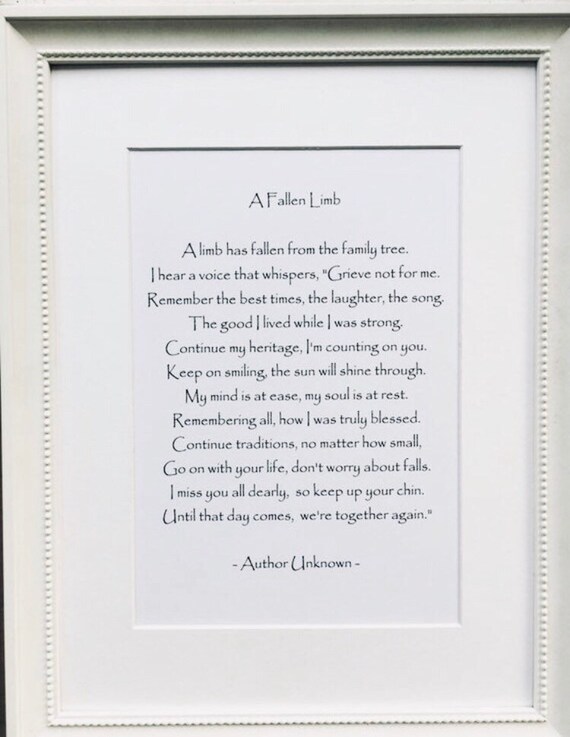 A Fallen Limb
A limb has fallen from the family tree.
I hear a voice that whispers, "Grieve not for me.
Remember the best times, the laughter, the song.
The good I lived while I was strong.
Continue my heritage, I'm counting on you.
Keep on smiling, the sun will shine through.
My mind is at ease, my soul is at rest.
Remembering all, how I was truly blessed.
Continue traditions, no matter how small,
Go on with your life, don't worry about falls.
I miss you all dearly, so keep up your chin.
Until that day comes, we're together again."
- Author Unknown -